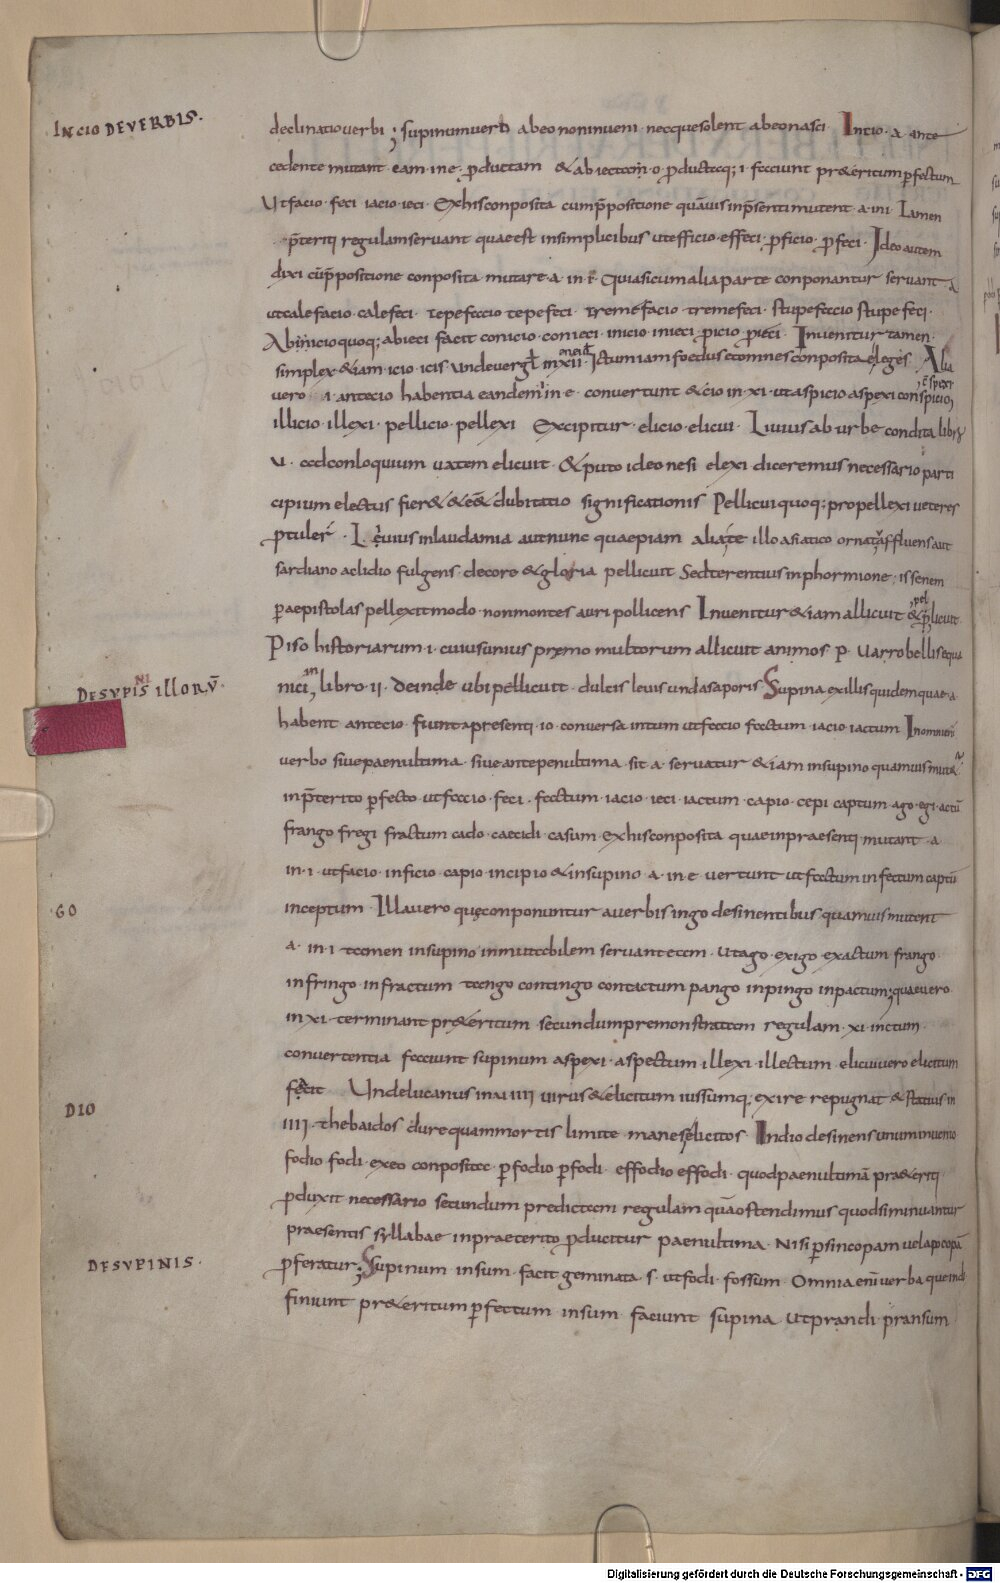 INCIO DEVERBIS.
declinatio verbi; supinum vero abeo non inveni necque solent abeo nasci Incio a ante
cedente mutant eam in e productam & abiectam o productaq; i faciunt pr&eritum pfectum
Ut facio feci iacio ieci Exhis conposita cum ppositione quāuis inpsenti mutent a in i tamen
pteriti regulam servant quae est insimplicibus ut efficio effeci pficio pfeci Ideo autem
dixi cū ppositione conposita mutare a in i quia si cum alia parte conponantur servant a
ut calefacio calefeci tepefacio tepefeci tremefacio tremefeci stupefacio stupefeci
Ab iitio quoq; abieci facit conicio conieci inicio inieci picio pieci Invenitur tamen
simplex &iam icio icis unde vergł in xii aneid Ictum iam foedus et omnes conposita e leges Alia
vero i ante cio habentia eandem i in e convertunt & cio in xi ut aspicio aspexi conspicio spexi
illicio illexi pellicio pellexi Excipitur elicio elicui Livius ab urbe condita libr
V ad conloquium vatem elicuit & puto ideo ne si elexi diceremus necessario parti
cipium electus fier& & eē& dubitatio significationis Pellicui quoq; pro pellexi veteres
ptuler L cuius in laudamia aut nunc quaepiam alia te illo asiatico ornatu affluens aut
sardiano ac lidio fulgens decore & gloria pellicuit Sed terentius in phormione; is senem
p aepistolas pellexit modo non montes auri pollicens Invenitur &iam allicuit & pellicuit
Piso historiarum i cuius unius premo multorum allicuit animos P Varro bellis equa
nici in libro ii deinde ubi pellicuit dulcis levis unda saporis Supina ex illis quidem quae a
DESUPINIS ILLORŪ
habent ante cio fiunt a presenti io conversa in tum ut facio factum iacio iactum In omni
verbo sive paenultima sive antepenultima sit a servatur &iam in supino quamvis mut&
in pterito pfecto ut facio feci factum iacio ieci iactum capio cepi captum ago egi actū
frango fregi fractum cado caecidi casum Exhis conposita quae in praesenti mutant a
in i ut facio inficio capio incipio & in supino a in e vertunt ut factum infectum captū
GO
inceptum Illa vero quę conponuntur a verbis in go desinentibus quamvis mutent
a in i tamen in supino inmutabilem servant eam ut ago exigo exactum frango
infringo infractum tango contingo contactum pango inpingo inpactum; quae vero
in xi terminant pr&eritum secundum premonstratam regulam xi in ctum
convertentia faciunt supinum aspexi aspectum illexi illectum elicui vero elicitum
facit Unde lucanus in xi iiii virus & elicitum iussumq; exire repugnat & statius in
DIO
iiii thebaidos dure quam mortis limite manes elicitos In dio desinens unum invenio
fodio fodi ex eo conposita pfodio pfodi effodio effodi quod paenultimā pra&eriti
pduxit necessario secundum predictam regulam quā ostendimus quod si minuantur
praesentis syllabae in praeterito pducitur paenultima Nisi p sincopam vel apocopā
DESUPINIS
pferatur; Supinum in sum facit geminata s ut fodi fossum Omnia enī verba que in di
finiunt pr&eritum pfectum in sum faciunt supina ut prandi pransum
Digitalisierung gefördert durch die Deutsche Forschungsgemeinschaft - DFG